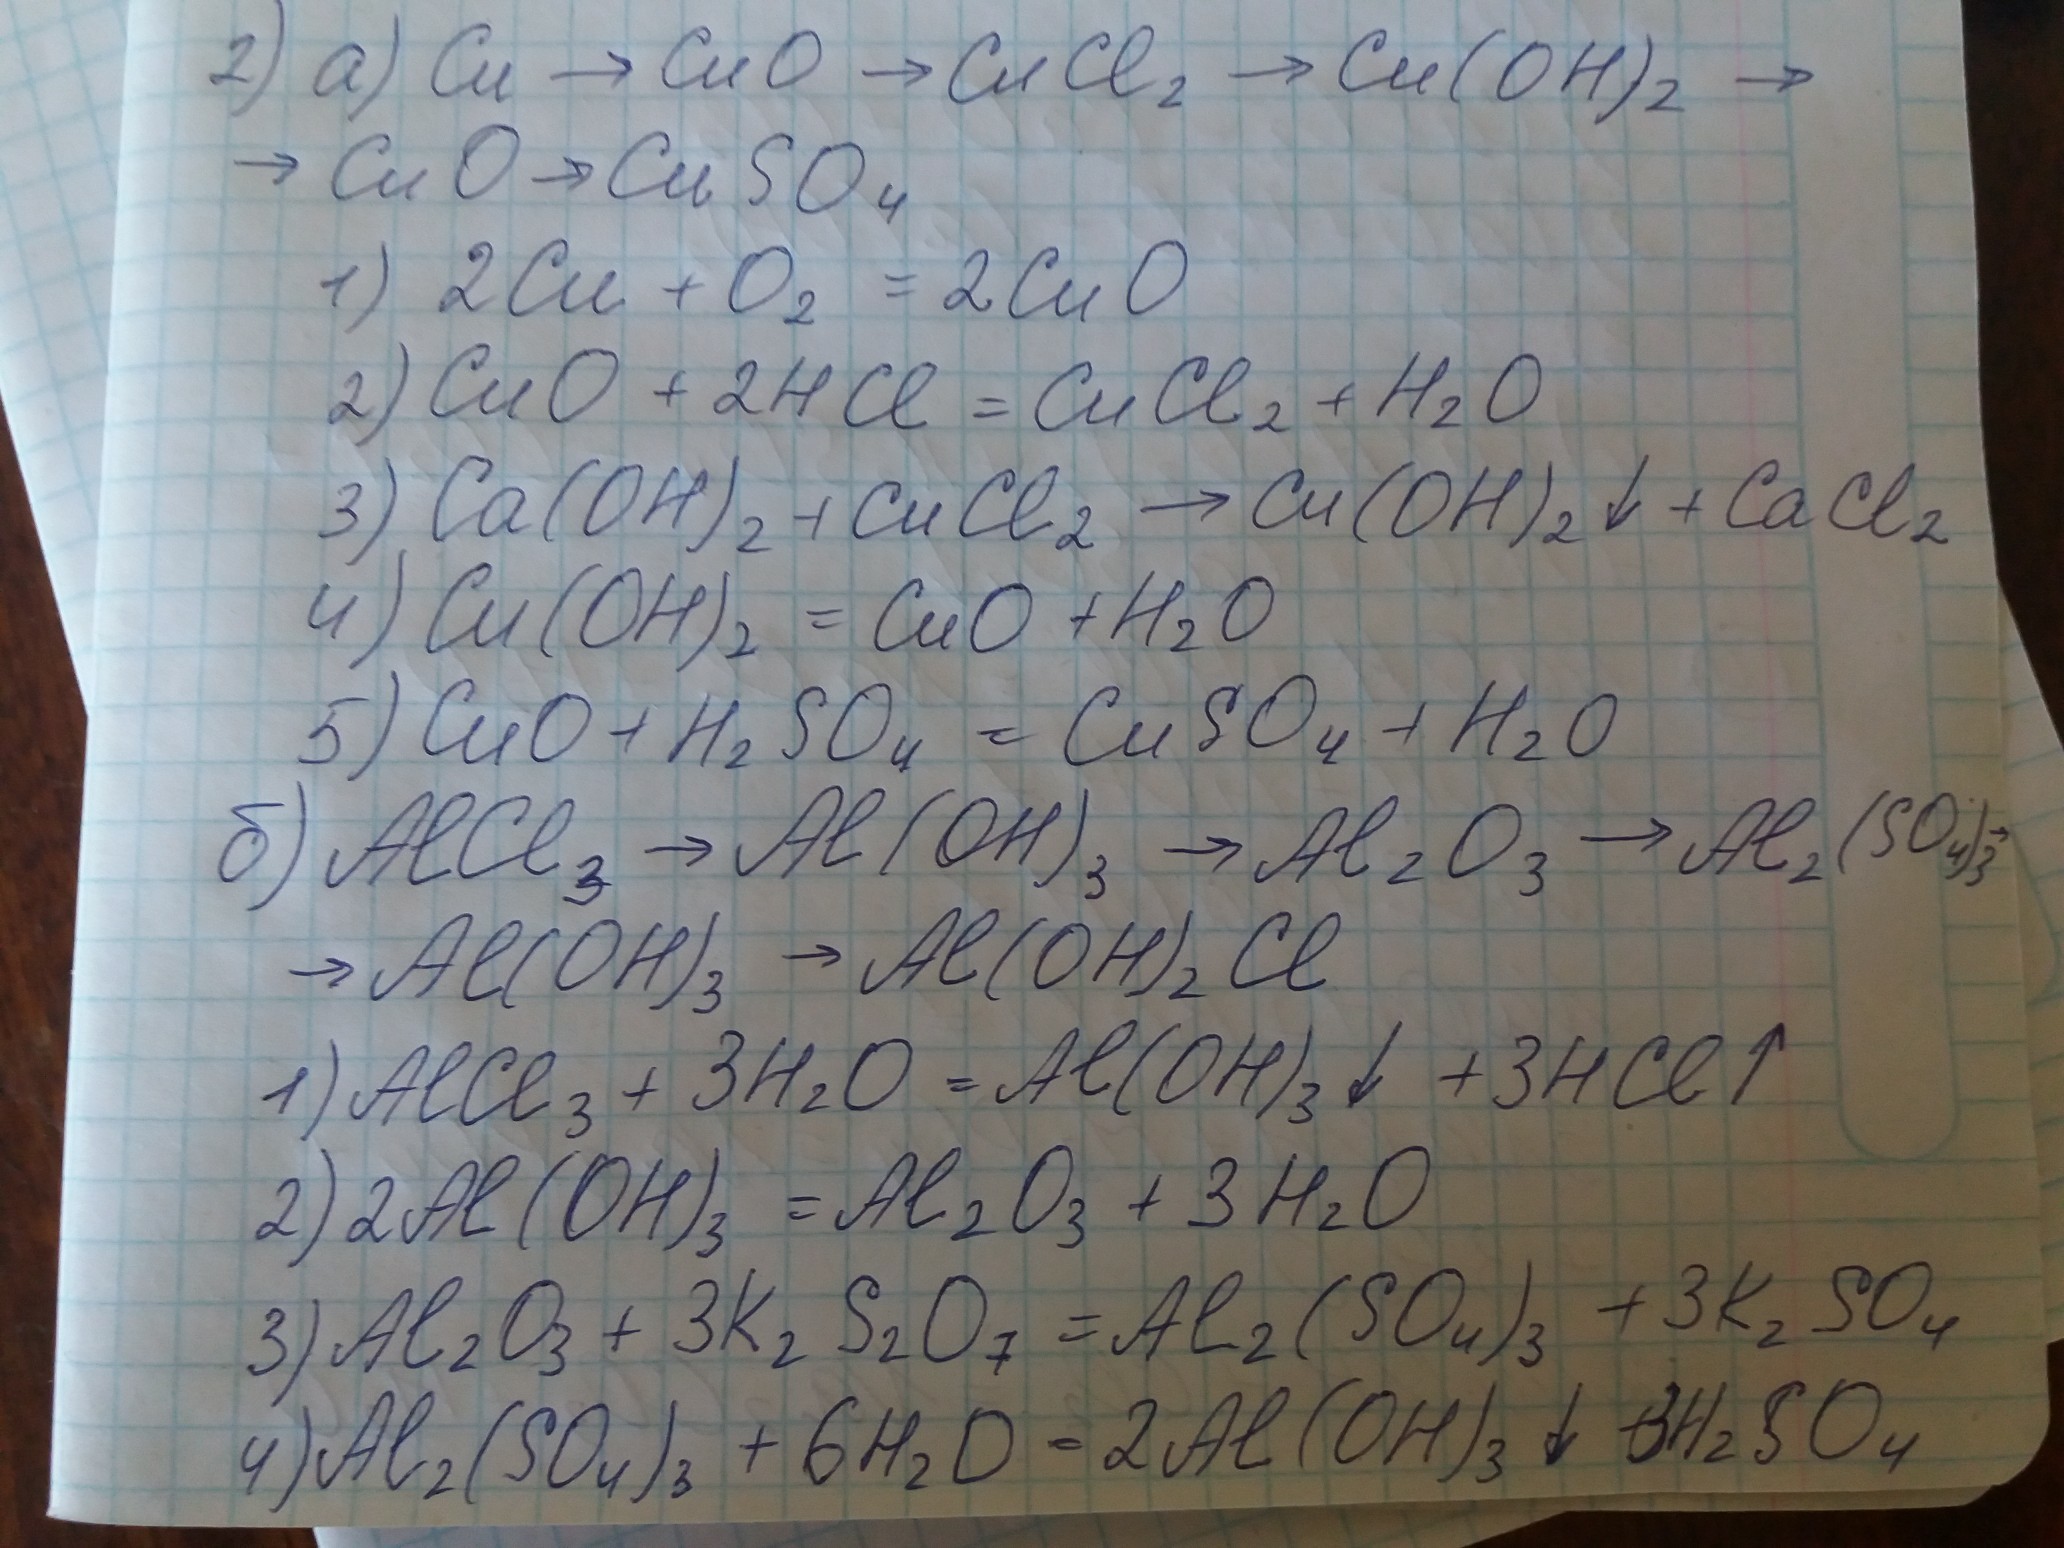 2) а) Cu → CuO → CuCl₂ → Cu(OH)₂ →
→ CuO → CuSO₄
1) 2Cu + O₂ = 2CuO
2) CuO + 2HCl = CuCl₂ + H₂O
3) Ca(OH)₂ + CuCl₂ → Cu(OH)₂↓ + CaCl₂
4) Cu(OH)₂ = CuO + H₂O
5) CuO + H₂SO₄ = CuSO₄ + H₂O
б) AlCl₃ → Al(OH)₃ → Al₂O₃ → Al₂(SO₄)₃→
→ Al(OH)₃ → Al(OH)₂Cl
1) AlCl₃ + 3H₂O = Al(OH)₃↓ + 3HCl↑
2) 2Al(OH)₃ = Al₂O₃ + 3H₂O
3) Al₂O₃ + 3K₂S₂O₇ = Al₂(SO₄)₃ + 3K₂SO₄
4) Al₂(SO₄)₃ + 6H₂O = 2Al(OH)₃↓ + 3H₂SO₄